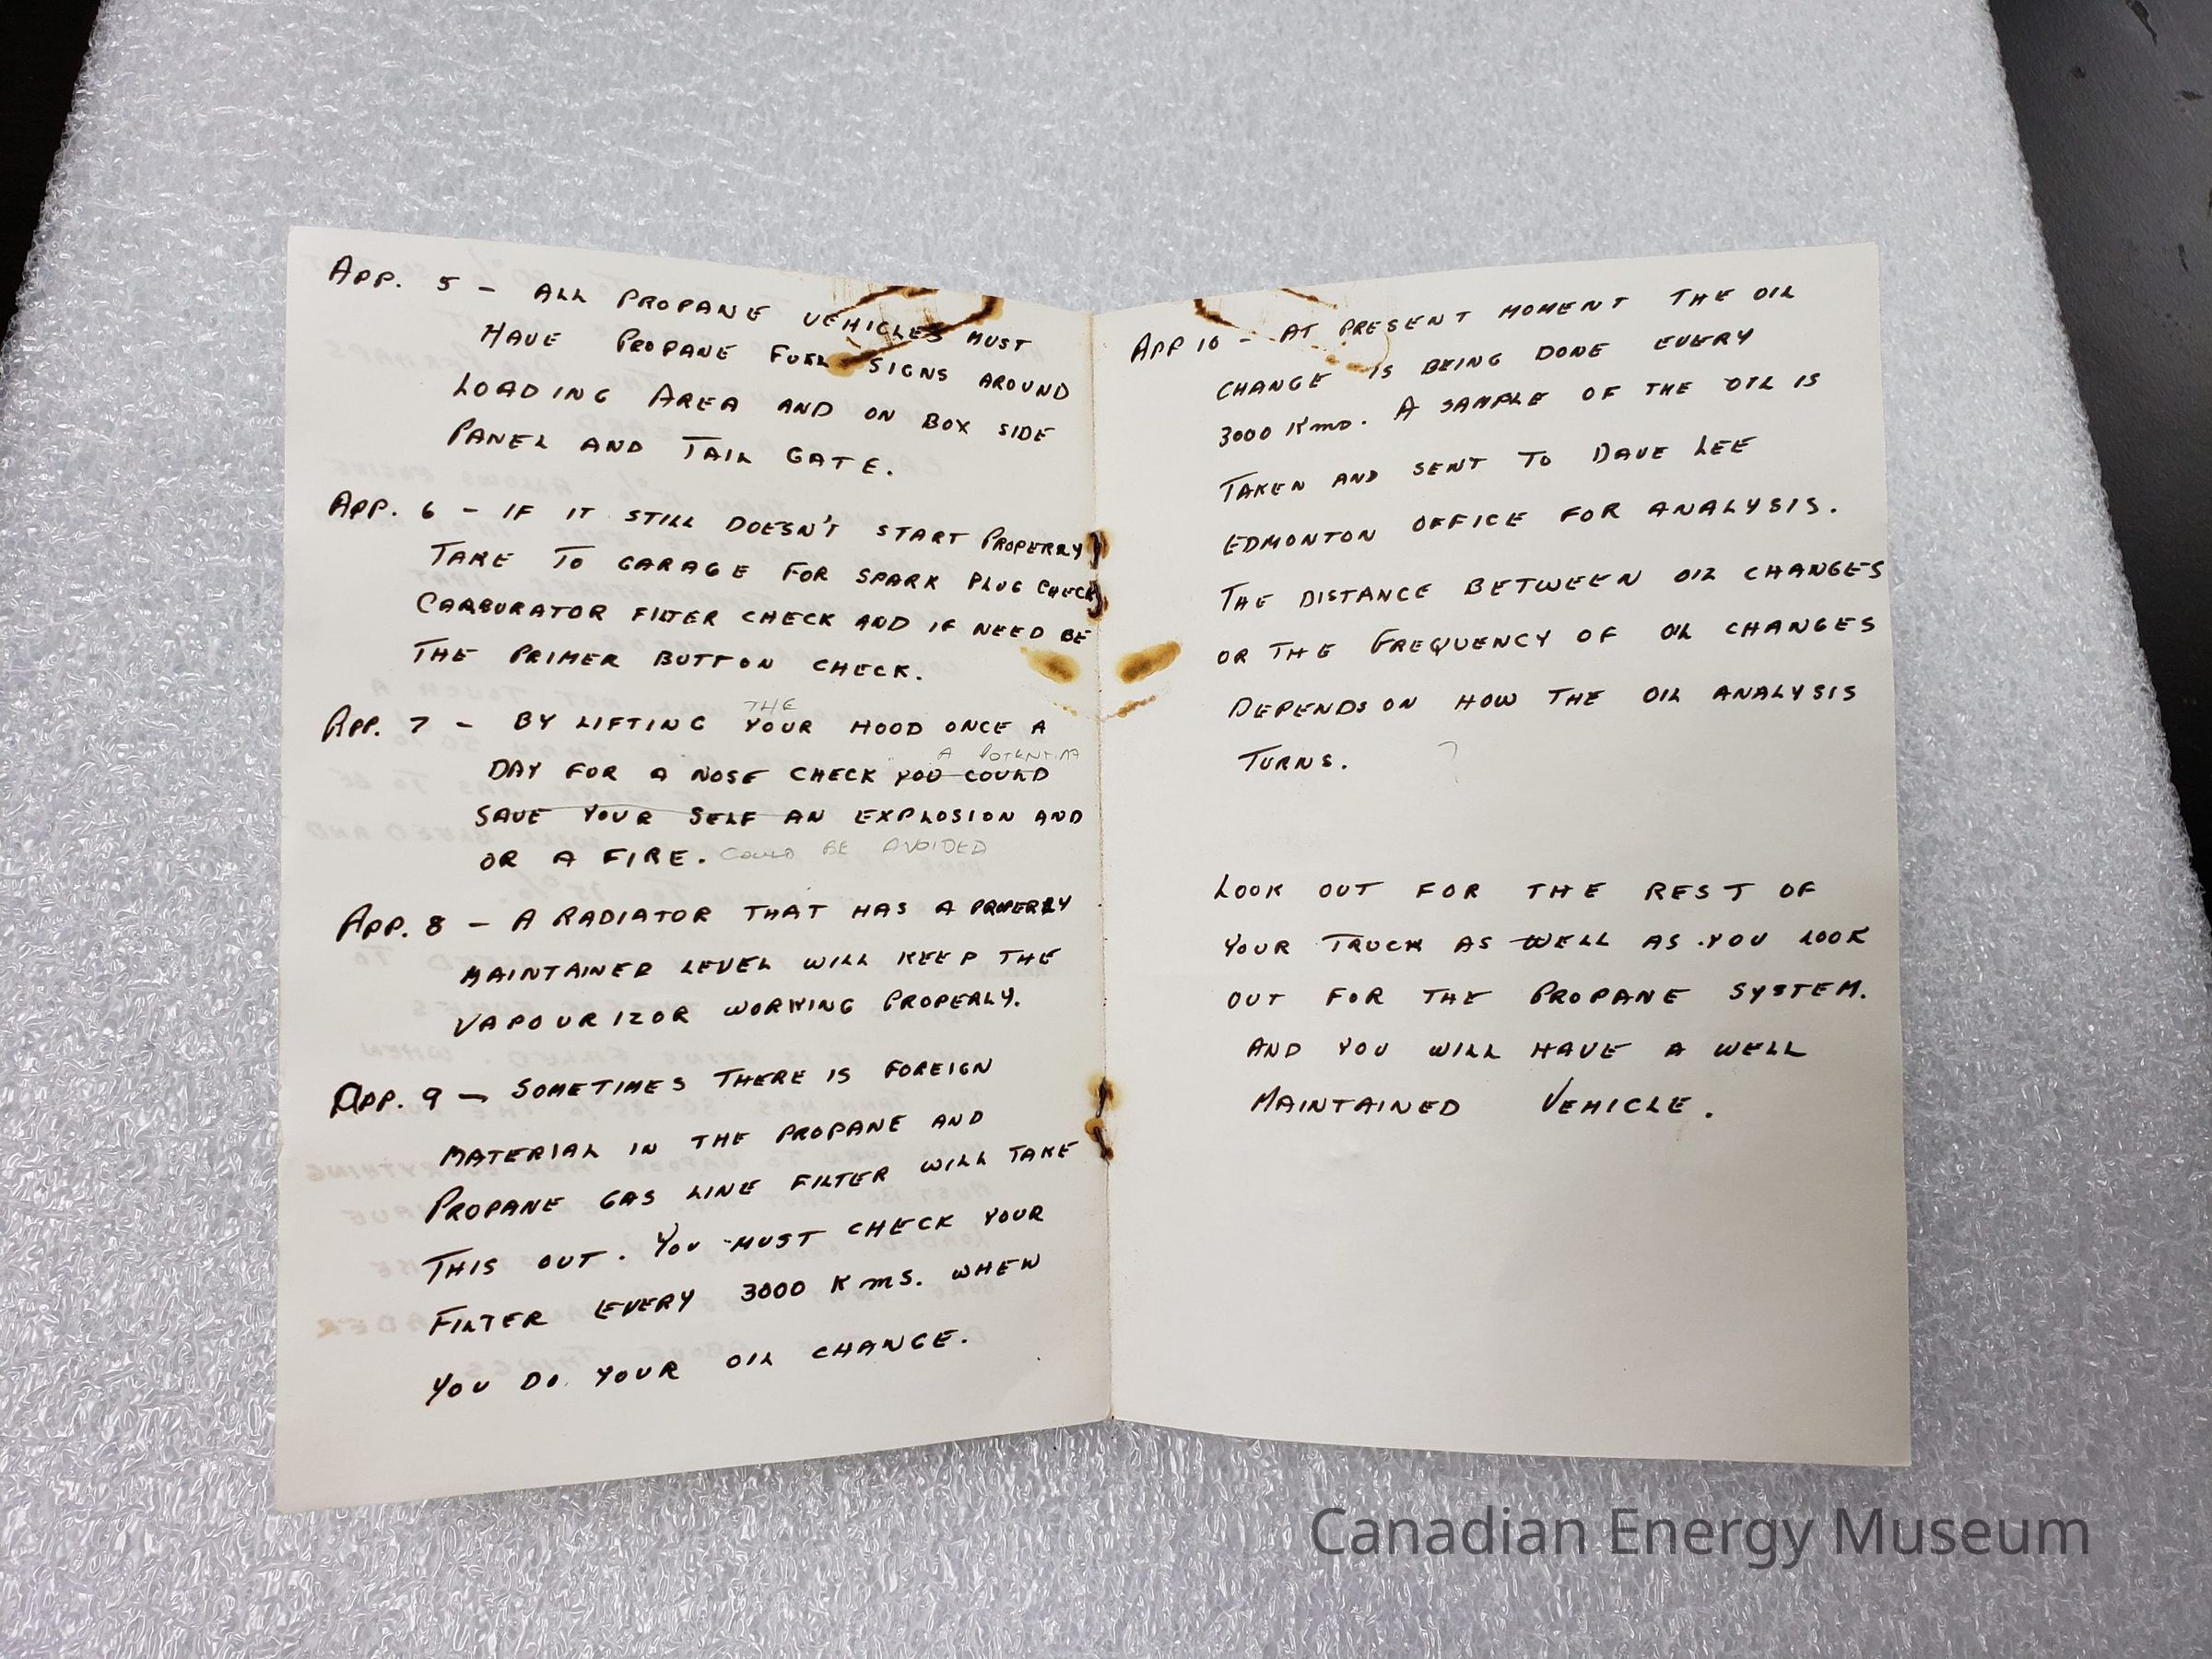 APP. 5 - ALL PROPANE VEHICLES MUST
HAVE PROPANE FUEL SIGNS AROUND
LOADING AREA AND ON BOX SIDE
PANEL AND TAIL GATE.
APP. 6 - IF IT STILL DOESN'T START PROPERLY
TAKE TO GARAGE FOR SPARK PLUG CHECK
CARBURATOR FILTER CHECK AND IF NEED BE
THE PRIMER BUTTON CHECK.
THE
APP. 7 - BY LIFTING YOUR HOOD ONCE A
A POTENTIAL
DAY FOR A NOSE CHECK YOU COULD
SAVE YOUR SELF AN EXPLOSION AND
OR A FIRE. COULD BE AVOIDED
APP. 8 - A RADIATOR THAT HAS A PROPERLY
MAINTAINED LEVEL WILL KEEP THE
VAPOURIZOR WORKING PROPERLY.
APP. 9 - SOMETIMES THERE IS FOREIGN
MATERIAL IN THE PROPANE AND
PROPANE GAS LINE FILTER WILL TAKE
THIS OUT. YOU MUST CHECK YOUR
FILTER EVERY 3000 KMS. WHEN
YOU DO YOUR OIL CHANGE.
APP 10 - AT PRESENT MOMENT THE OIL
CHANGE IS BEING DONE EVERY
3000 Kms. A SAMPLE OF THE OIL IS
TAKEN AND SENT TO DAVE LEE
EDMONTON OFFICE FOR ANALYSIS.
THE DISTANCE BETWEEN OIL CHANGES
OR THE FREQUENCY OF OIL CHANGES
DEPENDS ON HOW THE OIL ANALYSIS
TURNS. ?
LOOK OUT FOR THE REST OF
YOUR TRUCK AS WELL AS YOU LOOK
OUT FOR THE PROPANE SYSTEM.
AND YOU WILL HAVE A WELL
MAINTAINED VEHICLE.
Canadian Energy Museum